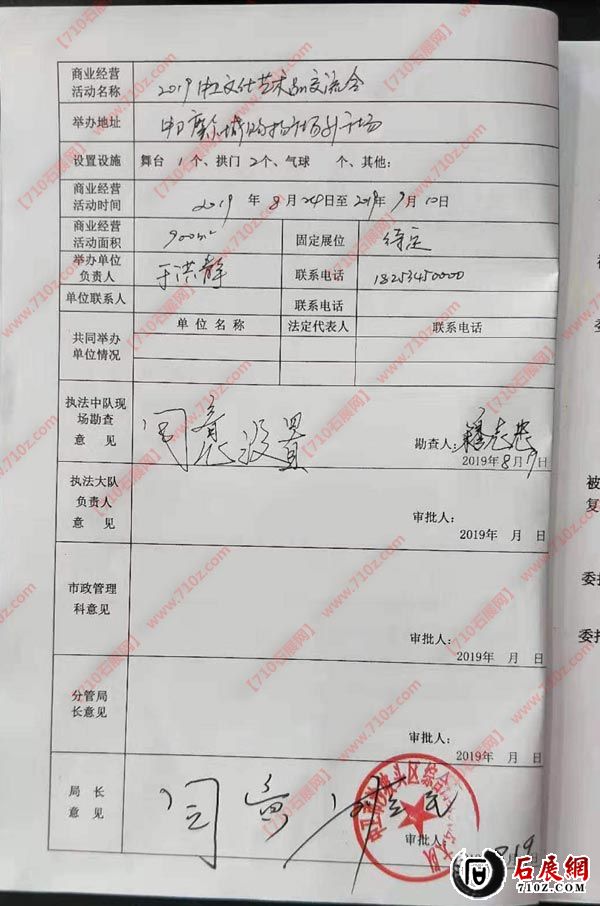 商业经营
活动名称
2019中卫文化艺术品交流会
举办地址
设置设施
舞台 1个、拱门 2个、气球 个、其他:
商业经营
活动时间
2019 年 8月24日至2019年9月10日
商业经营
活动面积
900m²
固定展位
待定
举办单位
负责人
于洪静
联系电话
18253450000
单位联系人
联系电话
共同举办
单位情况
单位名称
法定代表人
联系电话
执法中队现
场勘查
意 见
同意设置
勘查人:
2019年8月19日
执法大队
负责人
意 见
审批人:
2019年 月 日
市政管理
科意见
审批人:
2019年 月 日
分管局
长意见
审批人:
2019年 月 日
局 长
意 见
同意
审批人:
8月19
被
复
委托
委托
【710石展网】
www.710z.com
石展網
710Z.COM